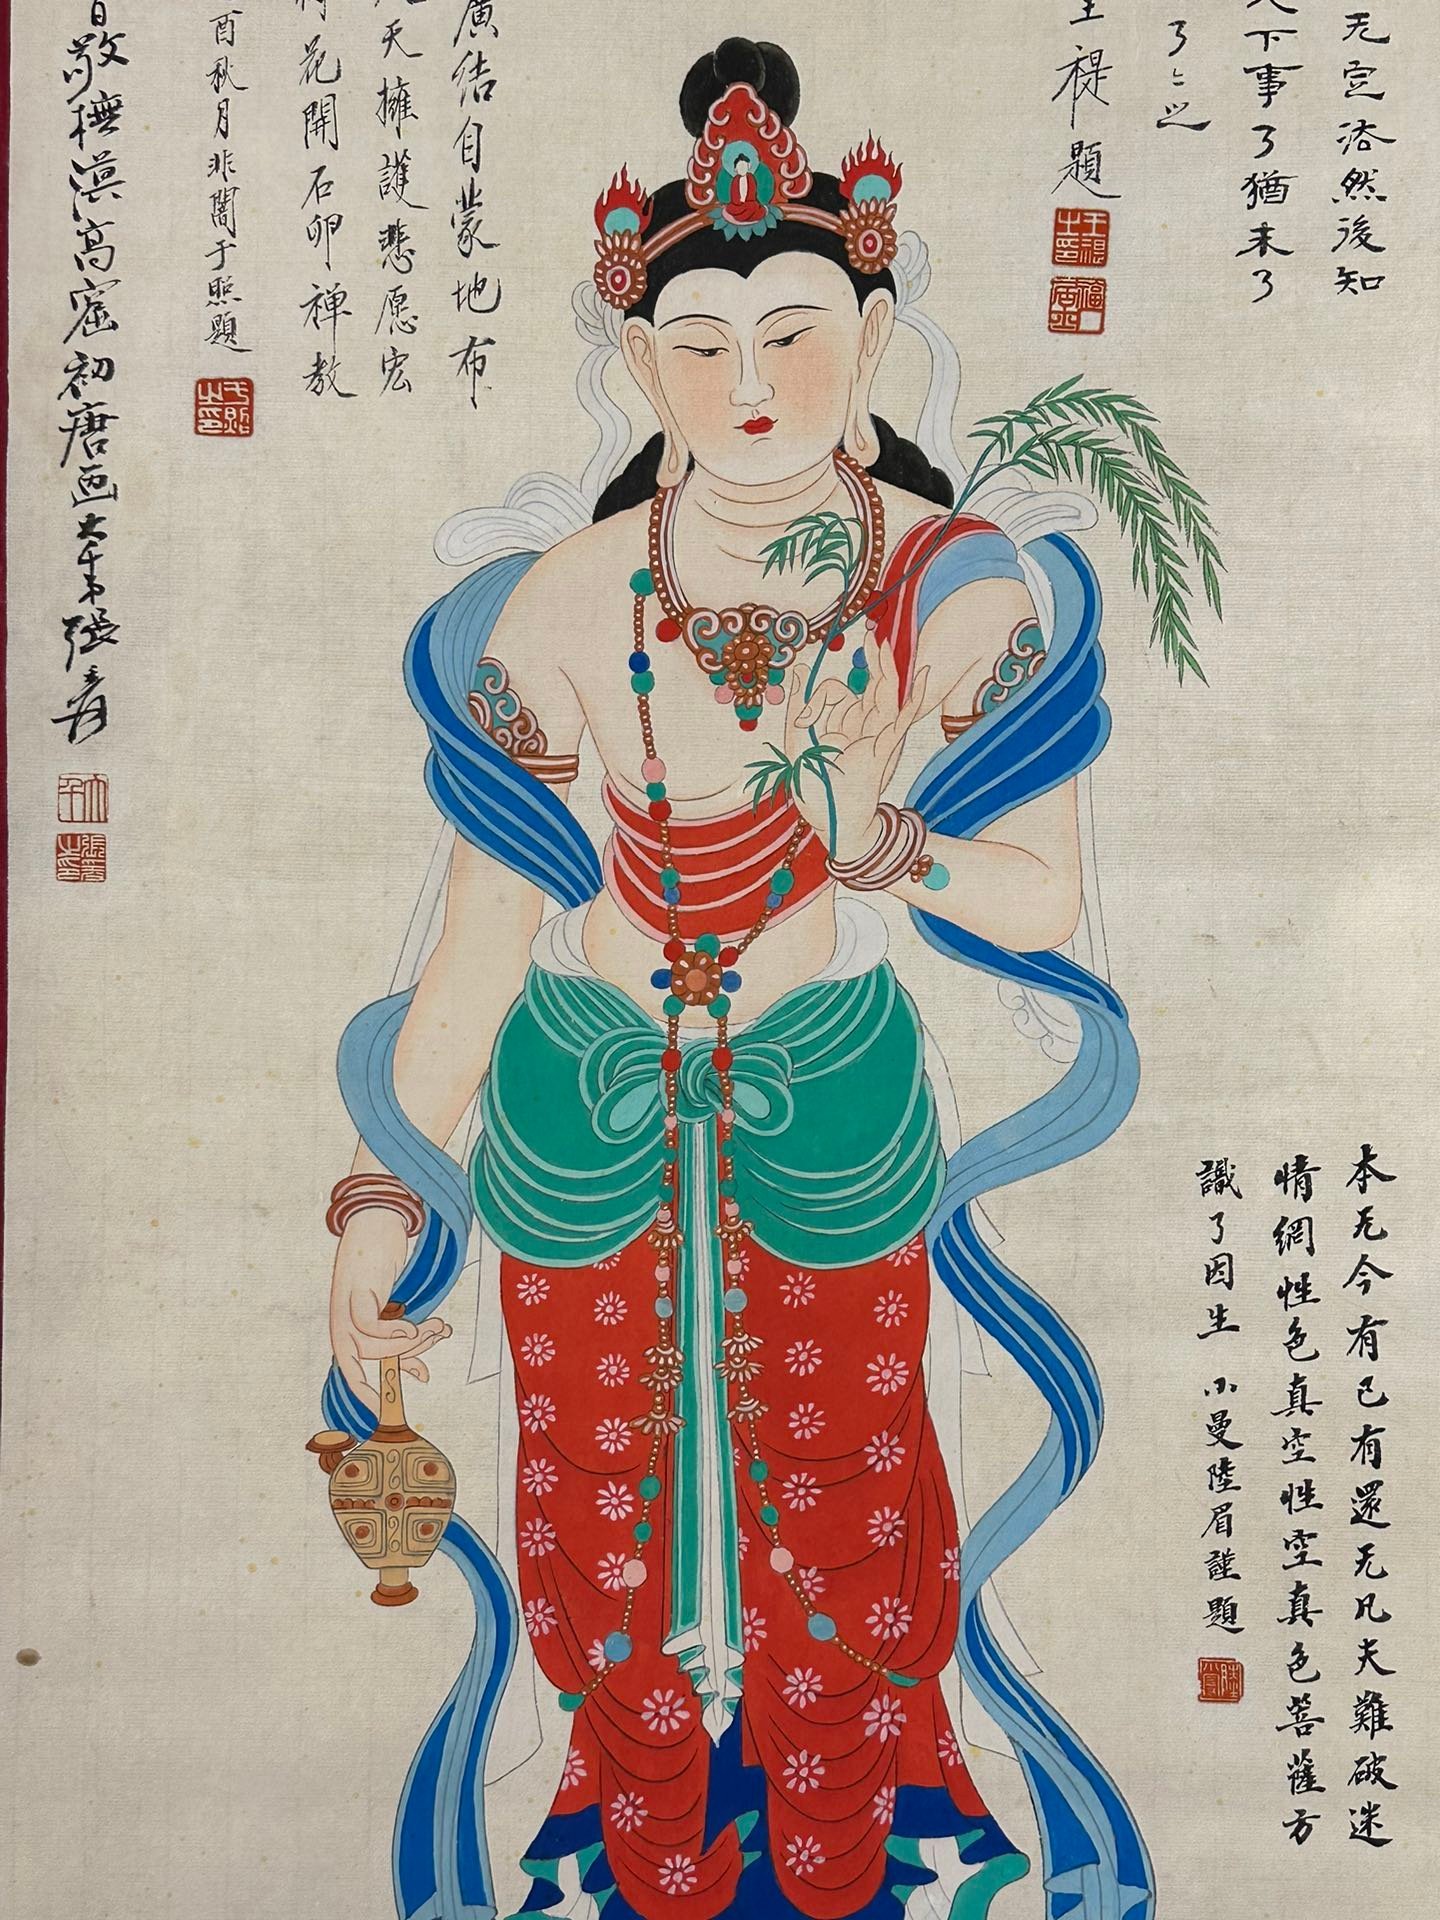 无定法然後知
天下事了猶未了
了之
王禔題
本无今有已有還无凡夫難破迷
情網性色真空性空真色菩薩方
識了因生 小曼陸眉謹題
廣结自蒙地布
天擁護悲愿宏
花開石卵禅教
酉秋月非闇于照題
敬橅漠高窟初唐画大千弟張爰